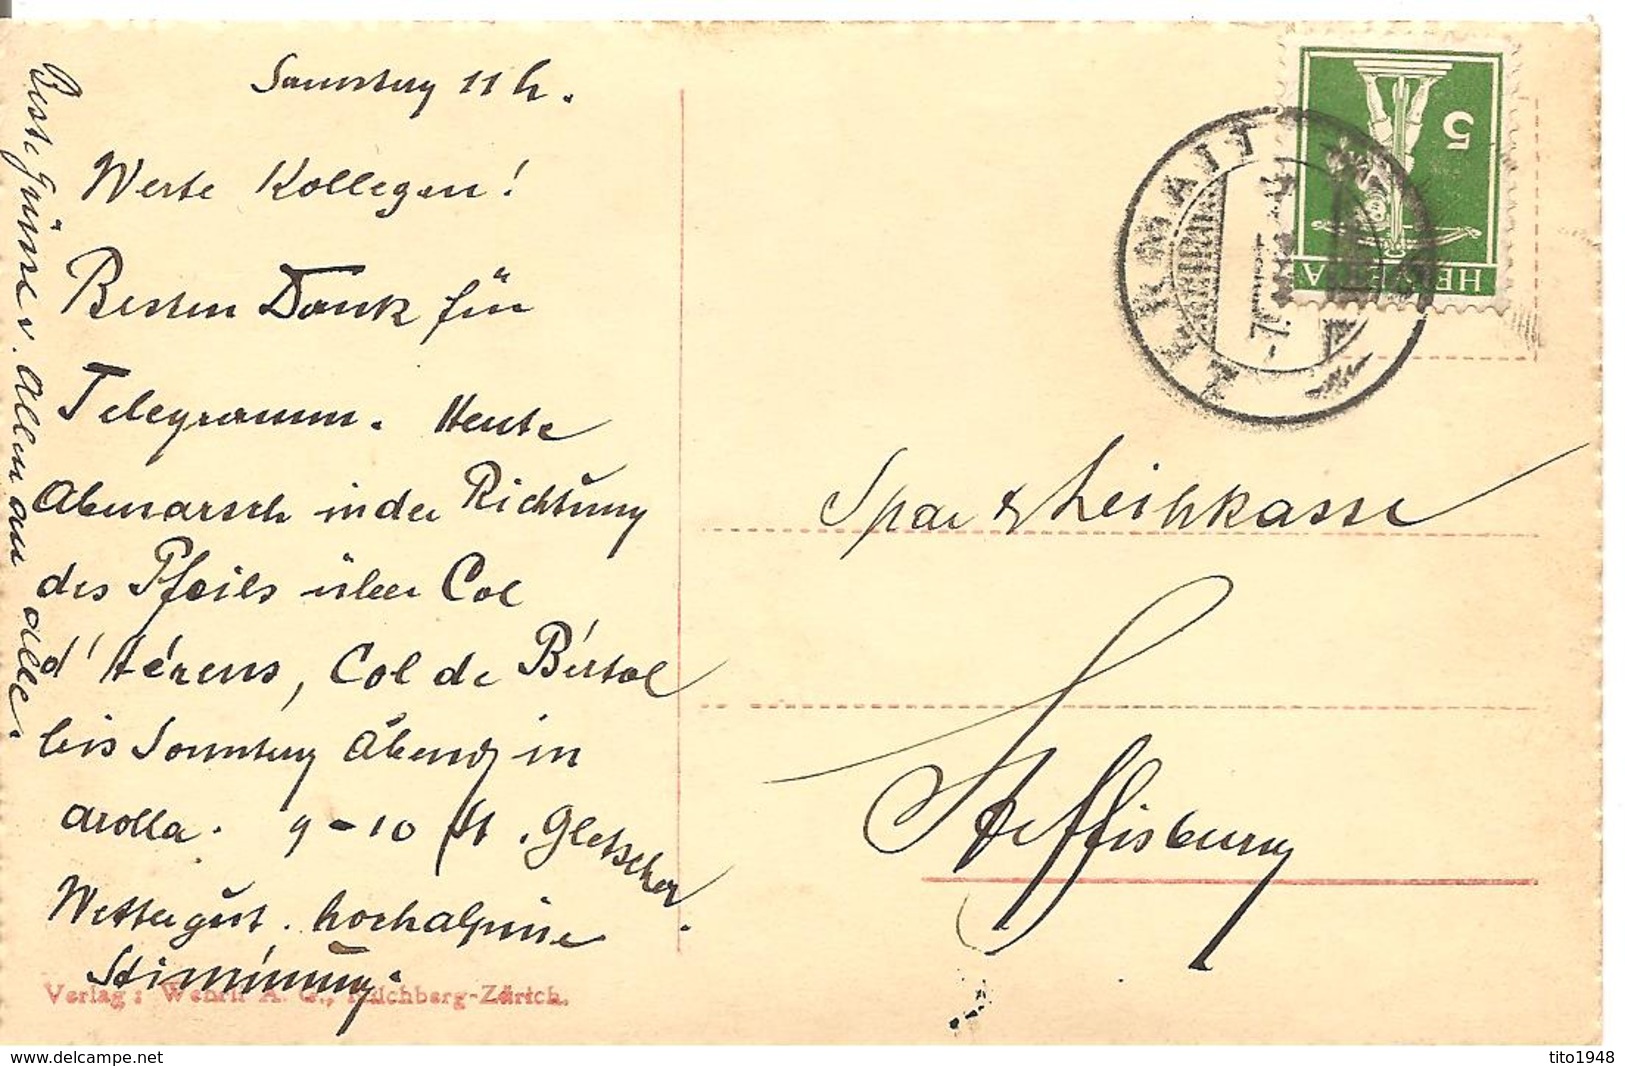 Samstag 11 h.
Werte Kollegen!
Besten Dank für
Telegramm. Heute
Abmarsch in der Richtung
des Pfeils über Col
d'Hérens, Col de Bértol
bis Sonntag Abend in
Arolla. 9-10 St. Gletscher.
Wetter gut. hochalpine
Stimmung.
Beste Grüsse v. Allen an alle.
Verlag: Wehrli A. G., Kilchberg-Zürich.
HELVETIA
5
ZERMATT
Spar & Leihkasse
Steffisburg
www.delcampe.net
tito1948